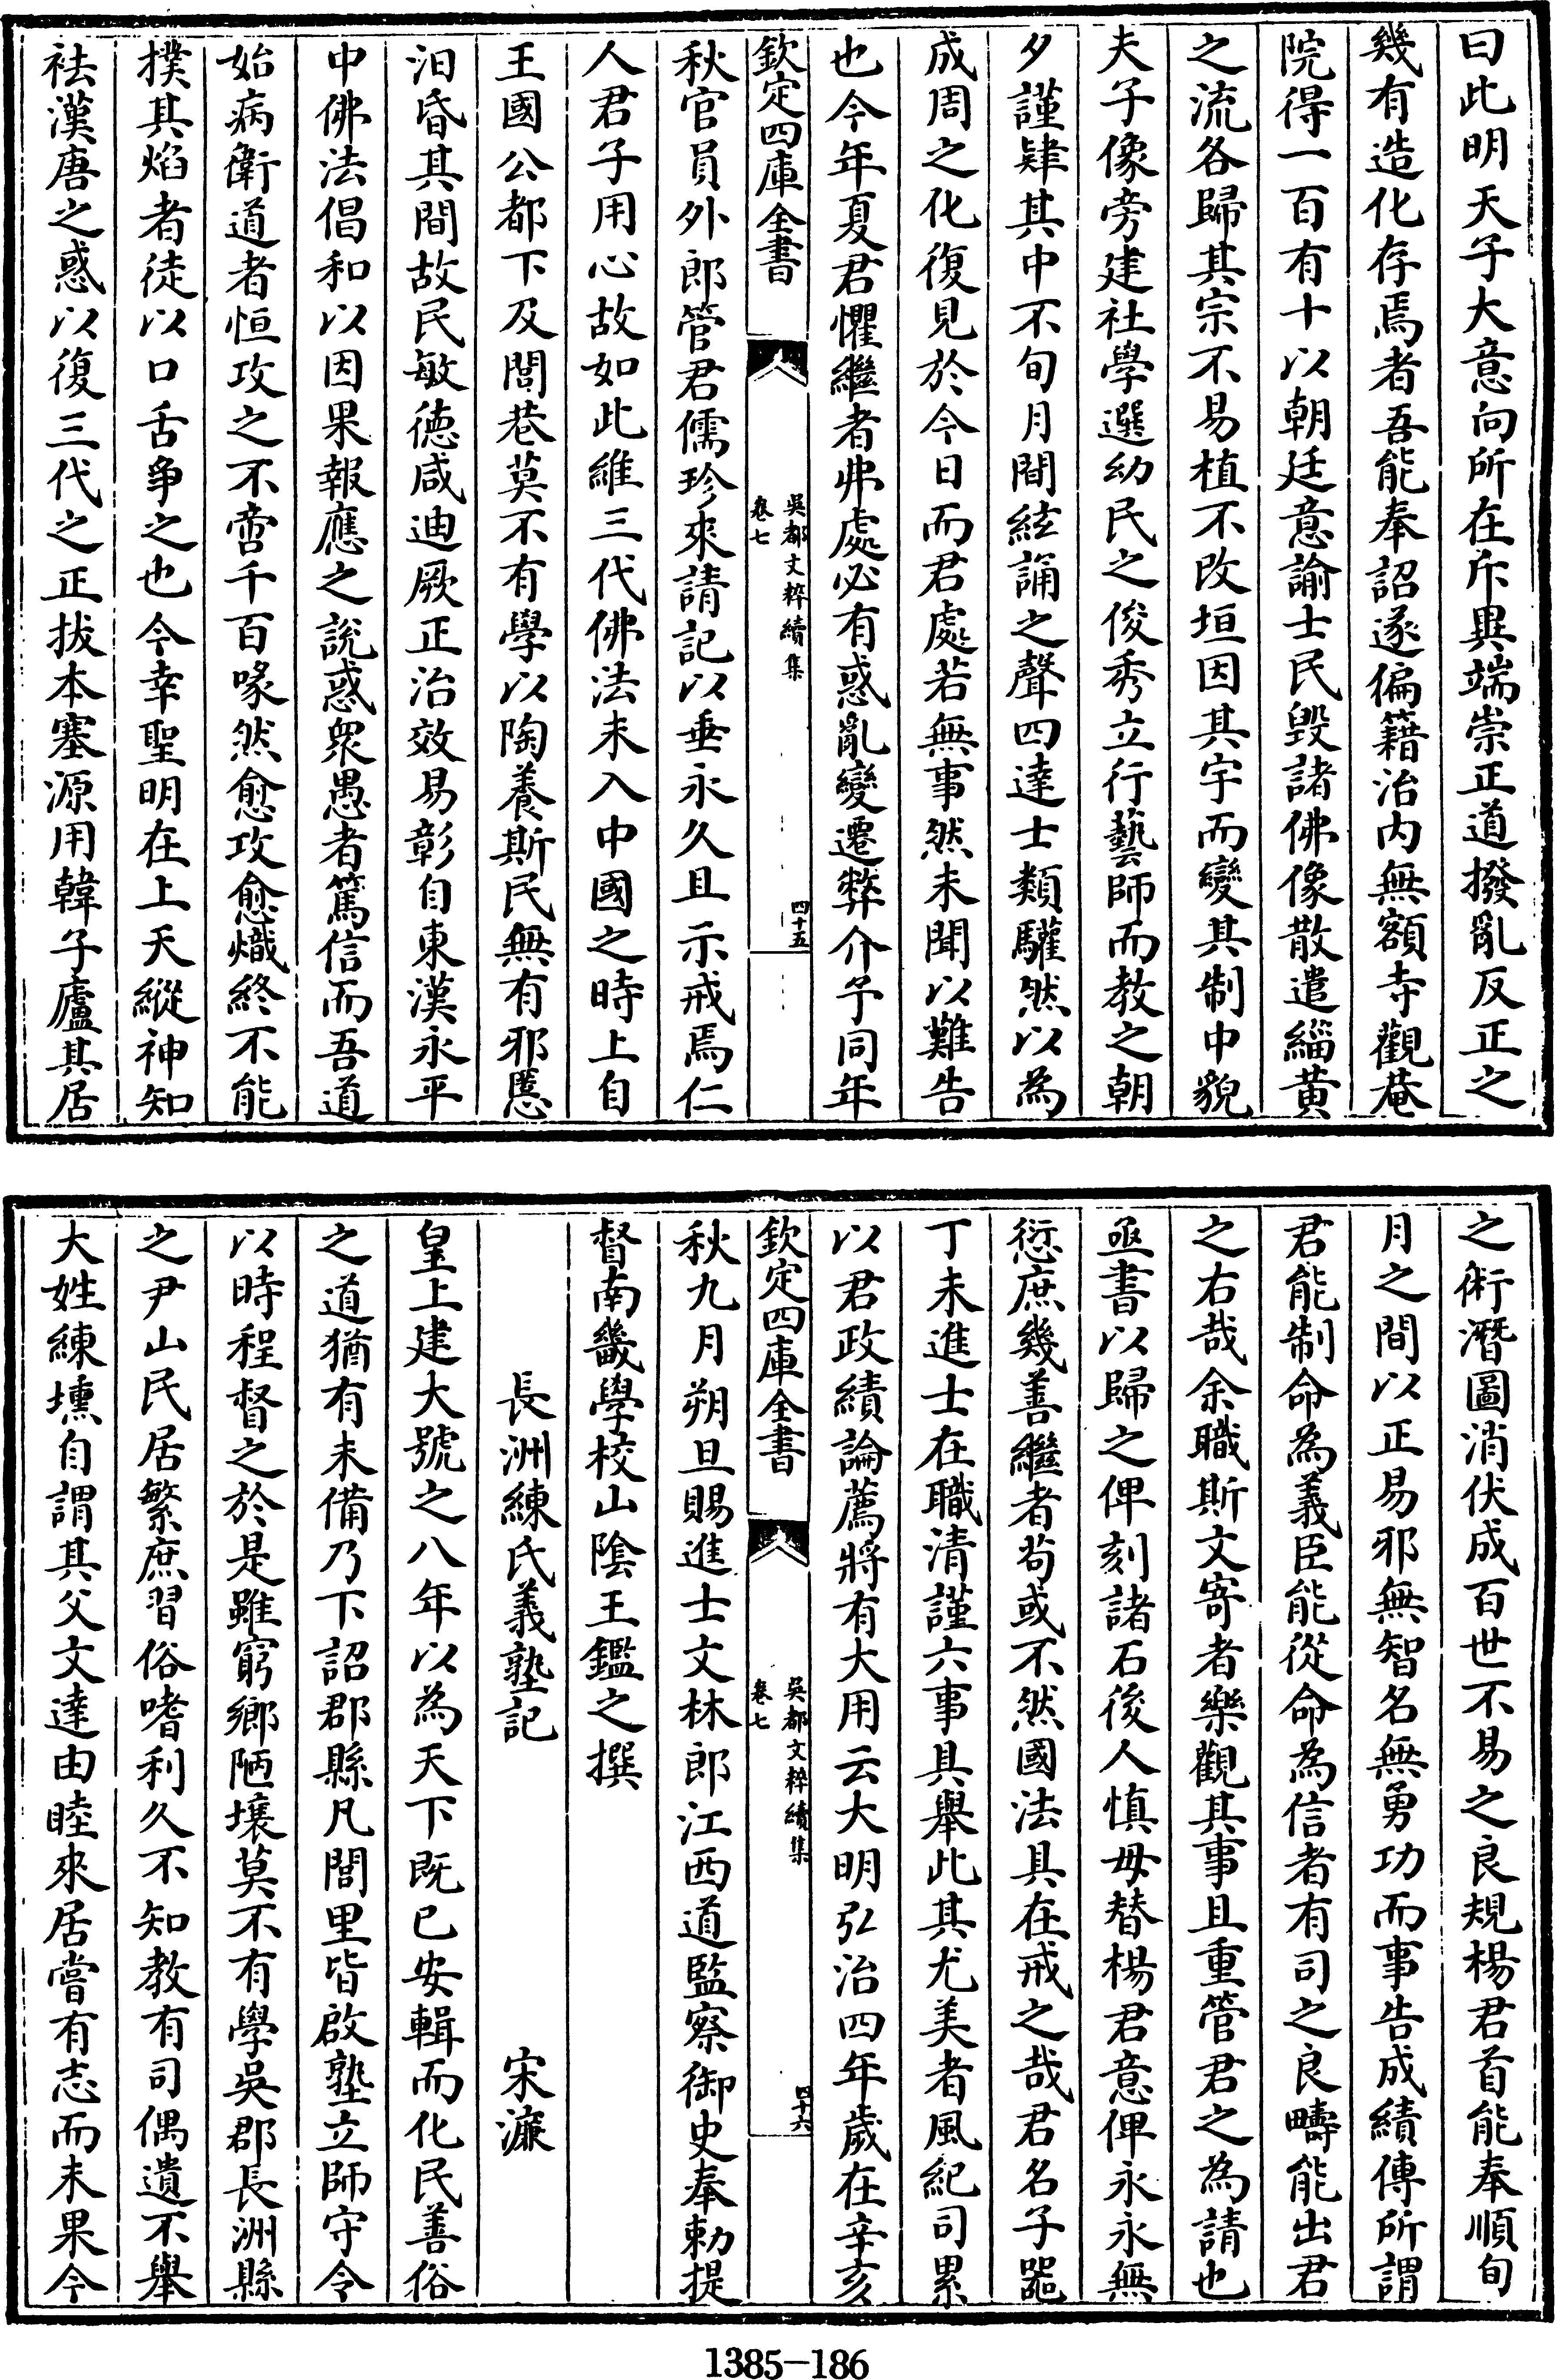 曰此明天子大意向所在斥異端崇正道撥亂反正之
幾有造化存焉者吾能奉詔遂徧籍治内無額寺觀菴
院得一百有十以朝廷意諭士民毀諸佛像散遣緇黄
之流各歸其宗不易植不改垣因其宇而變其制中貌
夫子像旁建社學選幼民之俊秀立行藝師而教之朝
夕謹肄其中不旬月間絃誦之聲四達士類驩然以為
成周之化復見於今日而君處若無事然未聞以難告
也今年夏君懼繼者弗處必有惑亂變遷弊介予同年
欽定四庫全書
吳都文粹續集
卷七
四十五
秋官員外郎管君儒珍來請記以垂永久且示戒焉仁
人君子用心故如此維三代佛法未入中國之時上自
王國公都下及閭巷莫不有學以陶養斯民無有邪慝
汨昏其間故民敏徳咸迪厥正治效易彰自東漢永平
中佛法倡和以因果報應之説惑衆愚者篤信而吾道
始病衛道者恒攻之不啻千百喙然愈攻愈熾終不能
撲其焰者徒以口舌爭之也今幸聖明在上天縱神知
祛漢唐之惑以復三代之正拔本塞源用韓子廬其居
之術潛圖消伏成百世不易之良規楊君首能奉順旬
月之間以正易邪無智名無勇功而事告成績傳所謂
君能制命為義臣能從命為信者有司之良疇能出君
之右哉余職斯文寄者樂觀其事且重管君之為請也
亟書以歸之俾刻諸石後人慎毋替楊君意俾永永無
愆庶幾善繼者茍或不然國法具在戒之哉君名子器
丁未進士在職清謹六事具舉此其尤美者風紀司累
以君政績論薦將有大用云大明弘治四年歲在辛亥
欽定四庫全書
吳都文粹續集
卷七
四十六
秋九月朔旦賜進士文林郎江西道監察御史奉勅提
督南畿學校山陰王鑑之撰
長洲練氏義塾記
宋濂
皇上建大號之八年以為天下既已安輯而化民善俗
之道猶有未備乃下詔郡縣凡閭里皆啟塾立師守令
以時程督之於是雖窮鄉陋壤莫不有學吳郡長洲縣
之尹山民居繁庶習俗嗜利久不知教有司偶遺不舉
大姓練壎自謂其父文達由睦來居嘗有志而未果今
1385-186